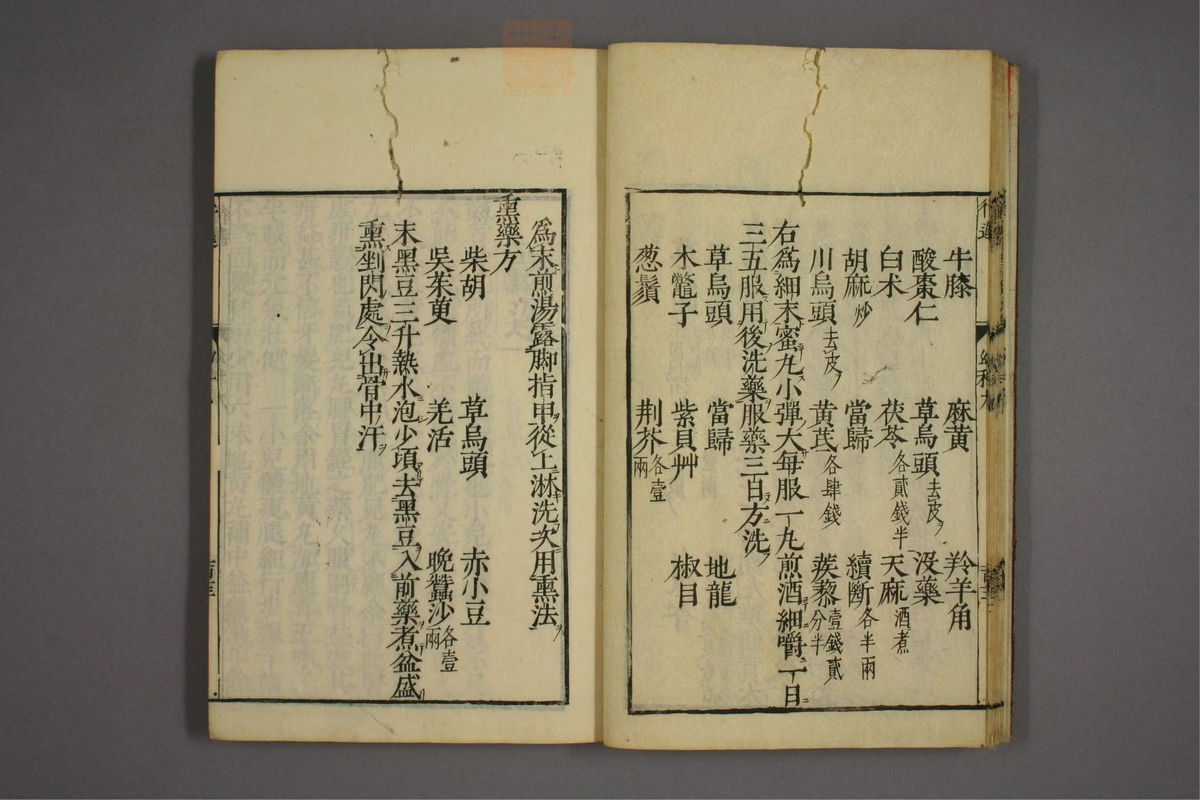 牛膝 麻黄 羚羊角
酸棗仁 草烏頭去皮 沒藥
白朮 茯苓各貳錢半 天麻酒煮
胡麻炒 當歸 續斷各半兩
川烏頭去皮 黄芪各肆錢 蒺藜壹錢貳分半
右爲細末蜜丸小彈大每服一丸煎酒細嚼一日
三五服用後洗藥服藥三百方洗
草烏頭 當歸 地龍
木鼈子 紫貝艸 椒目
葱鬚 荆芥各壹兩
爲末煎湯露脚指甲從上淋洗次用熏法
熏藥方
柴胡 草烏頭 赤小豆
吳茱萸 羌活 晩蠶沙各壹兩
末黑豆三升熱水泡少頃去黑豆入前藥煮盆盛
熏剉閃處令出骨中汗